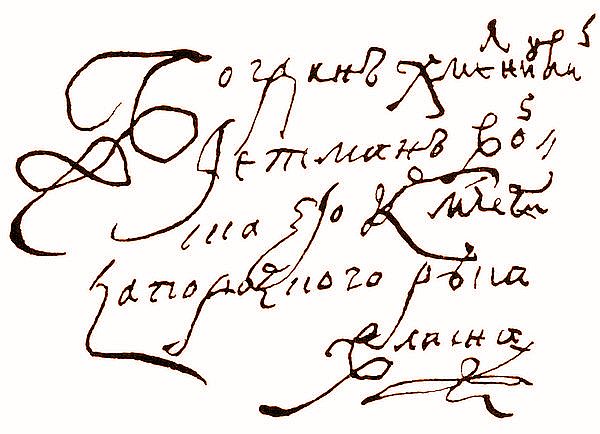 Богданъ Хмелницкий
Гетманъ Войс
ка Его К Милости
Запорозкого рꙋка
власна